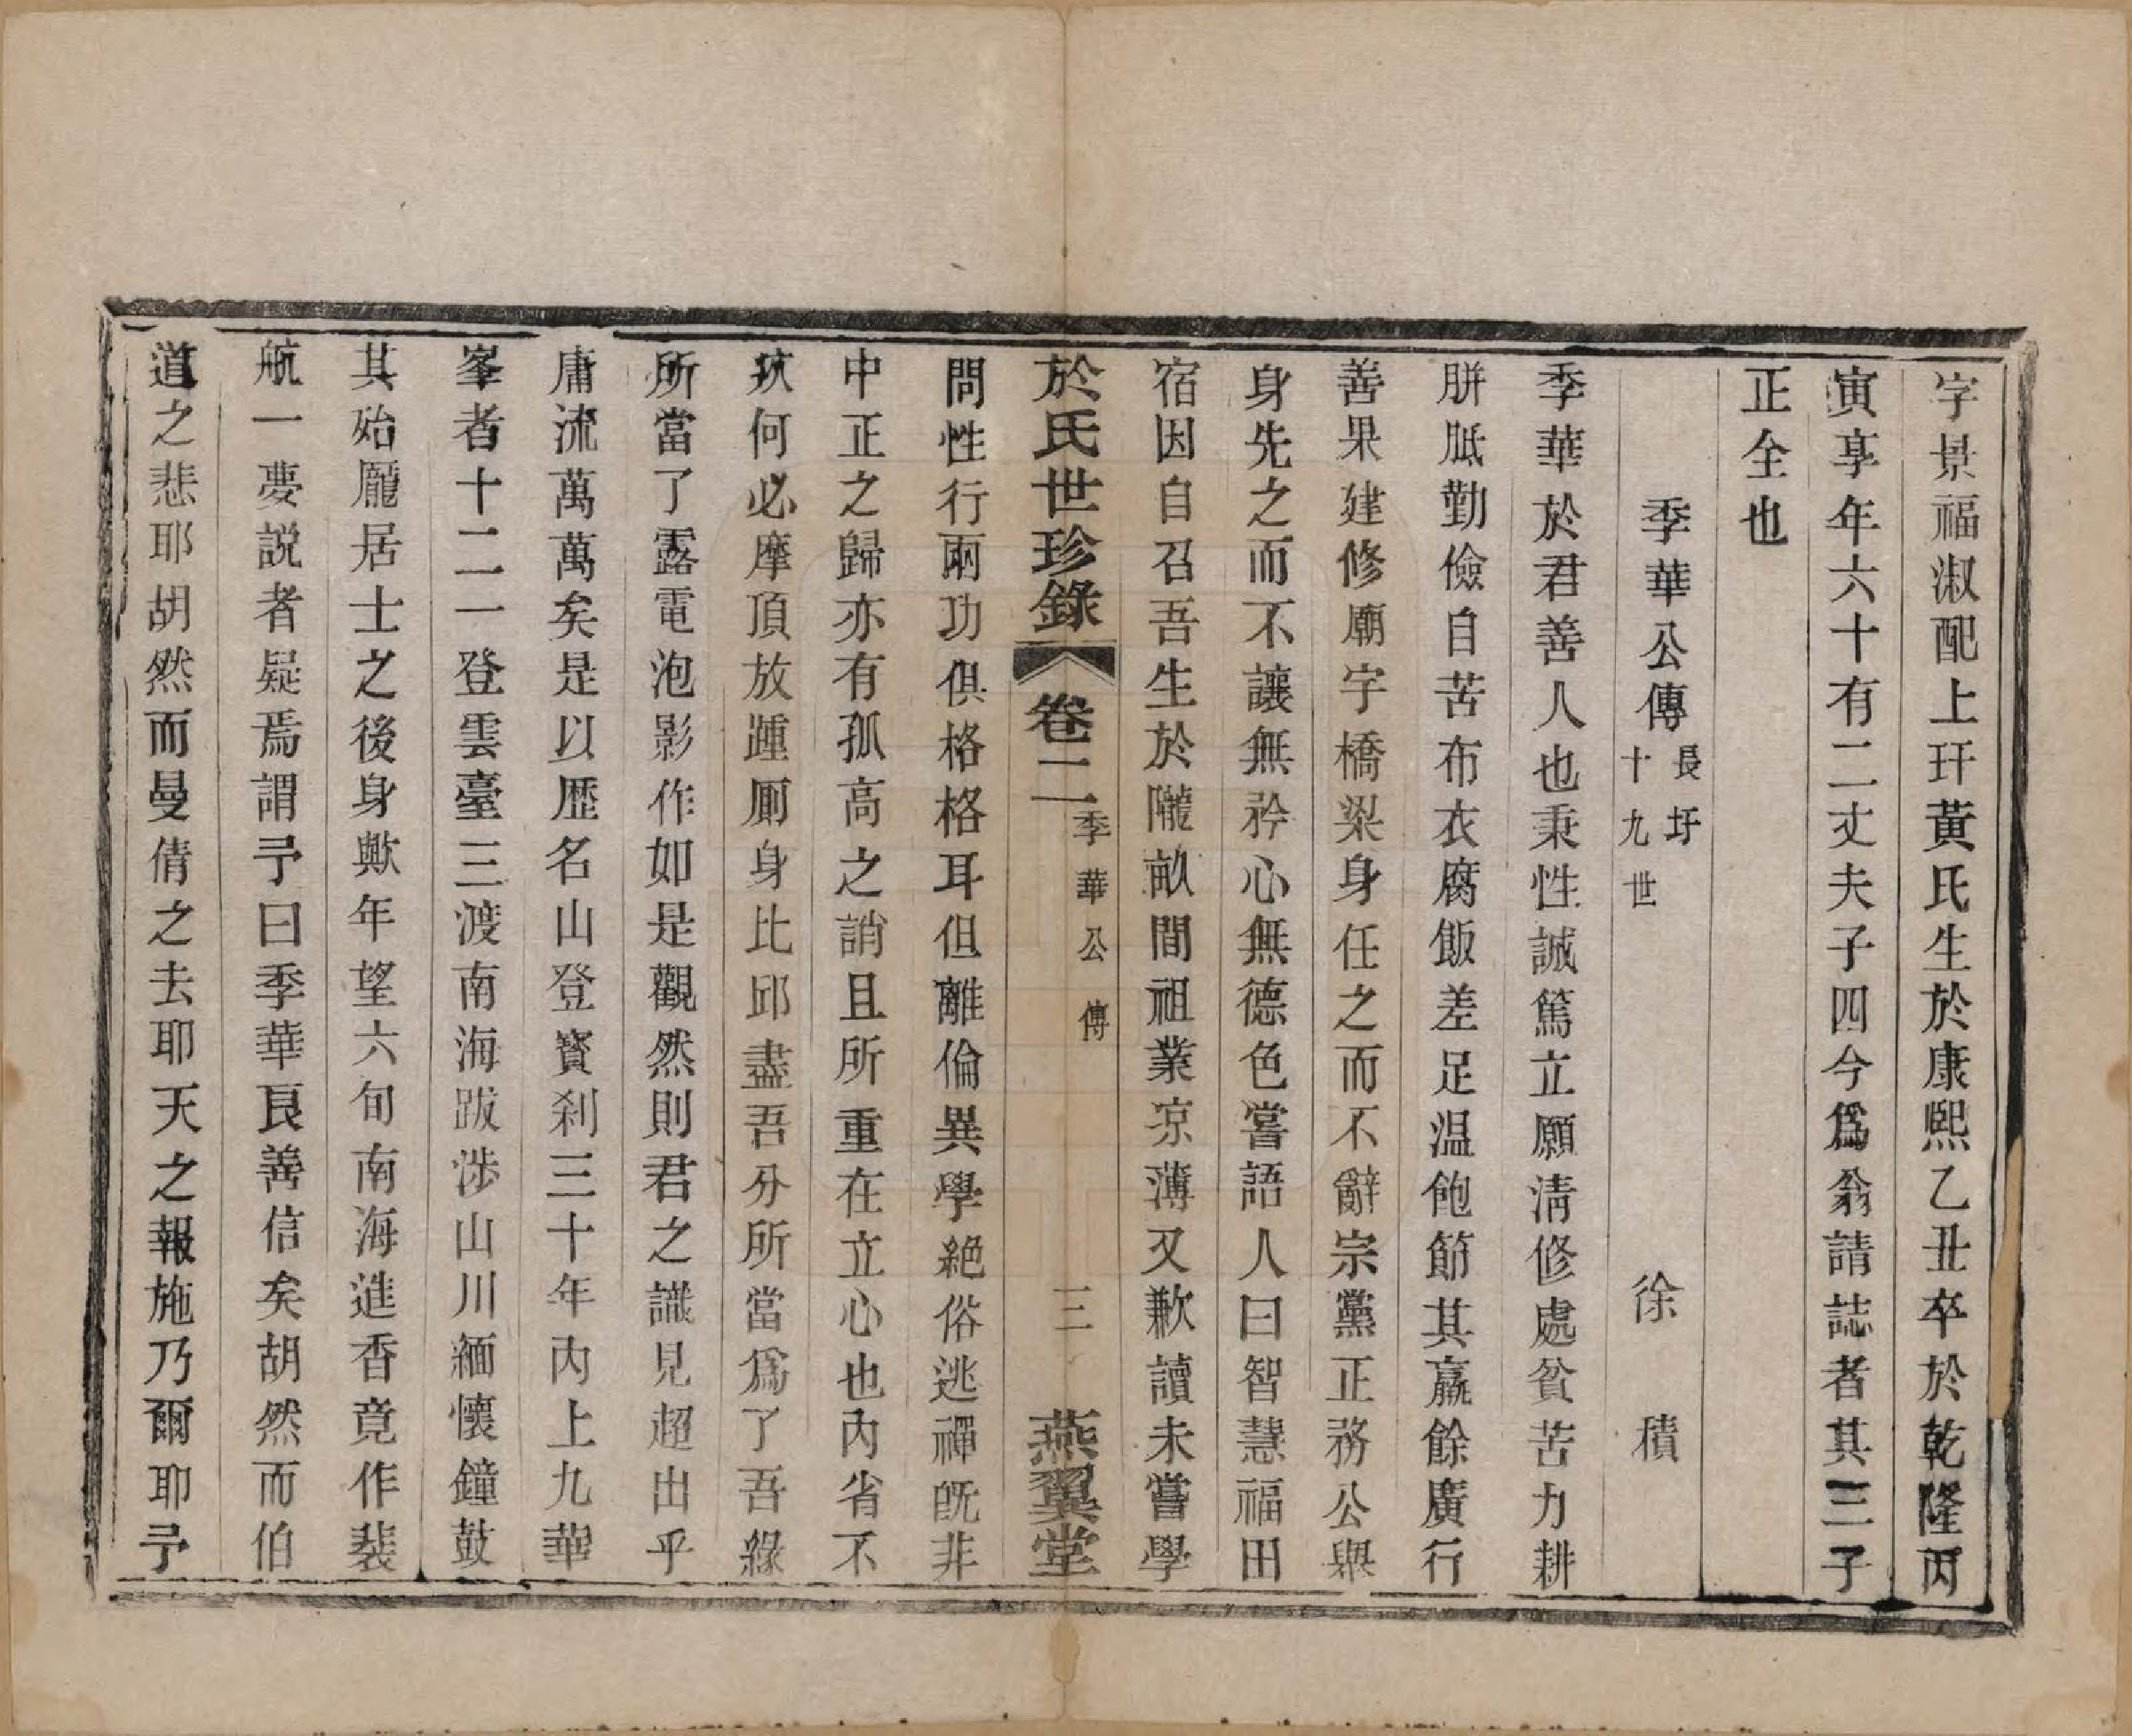 字景福淑配上玕黃氏生於康熙乙丑卒於乾隆丙
寅享年六十有二丈夫子四今爲翁請誌者其三子
正全也
季華公傳 長圩十九世 徐積
季華於君善人也秉性誠篤立願淸修處貧苦力耕
胼胝勤儉自苦布衣腐飯差足温飽節其羸餘廣行
善果建修廟宇橋梁身任之而不辭宗黨正務公舉
身先之而不讓無矜心無德色嘗語人曰智慧福田
宿因自召吾生於隴畝間祖業凉薄又歉讀未嘗學
於氏世珍錄 卷二 季華公傳 三 燕翼堂
問性行兩功俱格格耳但離倫異學絕俗逃禪旣非
中正之歸亦有孤高之誚且所重在立心也內省不
疚何必摩頂放踵厠身比邱盡吾分所當爲了吾緣
所當了露電泡影作如是觀然則君之識見超出乎
庸流萬萬矣是以歷名山登寶刹三十年內上九華
峯者十二一登雲臺三渡南海跋涉山川緬懷鐘鼓
其始龐居士之後身歟年望六旬南海進香竟作裴
航一夢説者疑焉謂予曰季華良善信矣胡然而伯
道之悲耶胡然而曼倩之去耶天之報施乃爾耶予